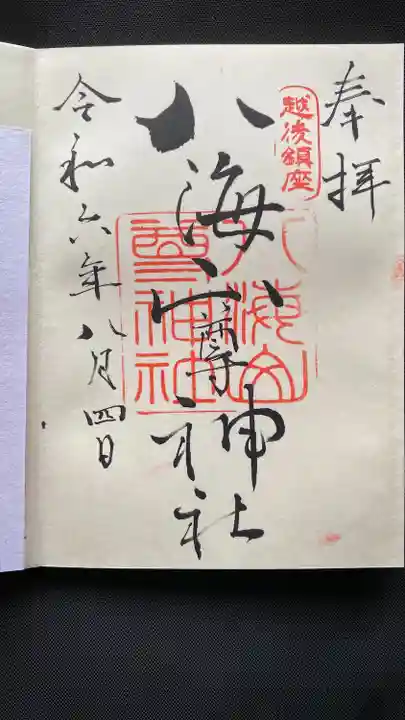 奉拝
越後鎮座
八海山尊神社
八海山
尊神社
令和六年八月四日